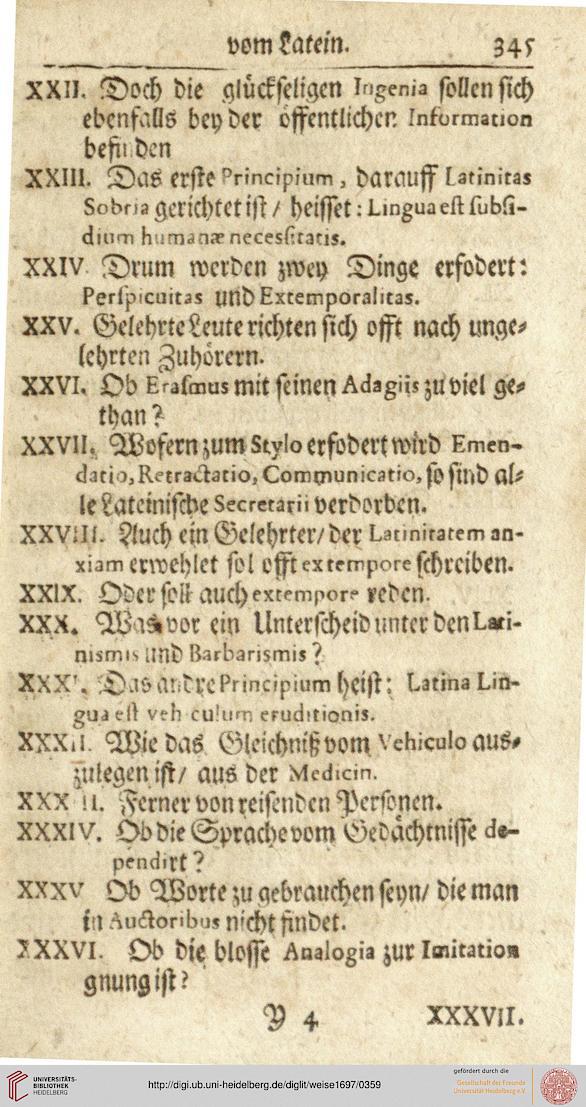 vom Latein. 345
XXII. Doch die glückseligen Ingenia sollen sich
ebenfalls bey der öffentlichen Information
befinden
XXIII. Das erste Principium, darauff Latinitas
Sobria gerichtet ist / heisset: Lingua est subsi-
dium humanæ necessitatis.
XXIV. Drum werden zwey Dinge erfodert:
Perspicuitas und Extemporalitas.
XXV. Gelehrte Leute richten sich offt nach unge-
lehrten Zuhörern.
XXVI. Ob Erasmus mit seinen Adagiis zu viel ge-
than?
XXVII. Wofern zum Stylo erfodert wird Emen-
datio, Retractatio, Communicatio, so sind al-
le Lateinische Secretarii verdorben.
XXVIII. Auch ein Gelehrter/ der Latinitatem an-
xiam erwehlet sol offt extempore schreiben.
XXIX. Oder soll auch extempore reden.
XXX. Was vor ein Unterscheid unter den Lati-
nismis und Barbarismis?
XXXI. Das andre Principium heist: Latina Lin-
gua est vehiculum eruditionis.
XXXII. Wie das Gleichniß vom Vehiculo aus-
zulegen ist/ aus der Medicin.
XXXIII. Ferner von reisenden Personen.
XXXIV. Ob die Sprache vom Gedächtnisse de-
pendirt?
XXXV Ob Worte zu gebrauchen seyn/ die man
in Auctoribus nicht findet.
XXXVI. Ob die blosse Analogia zur Imitation
gnung ist?
Y 4 XXXVII.
UNIVERSITÄTS-
BIBLIOTHEK
HEIDELBERG
http://digi.ub.uni-heidelberg.de/diglit/weise1697/0359
gefördert durch die
Gesellschaft der Freunde
Universität Heidelberg e.V.